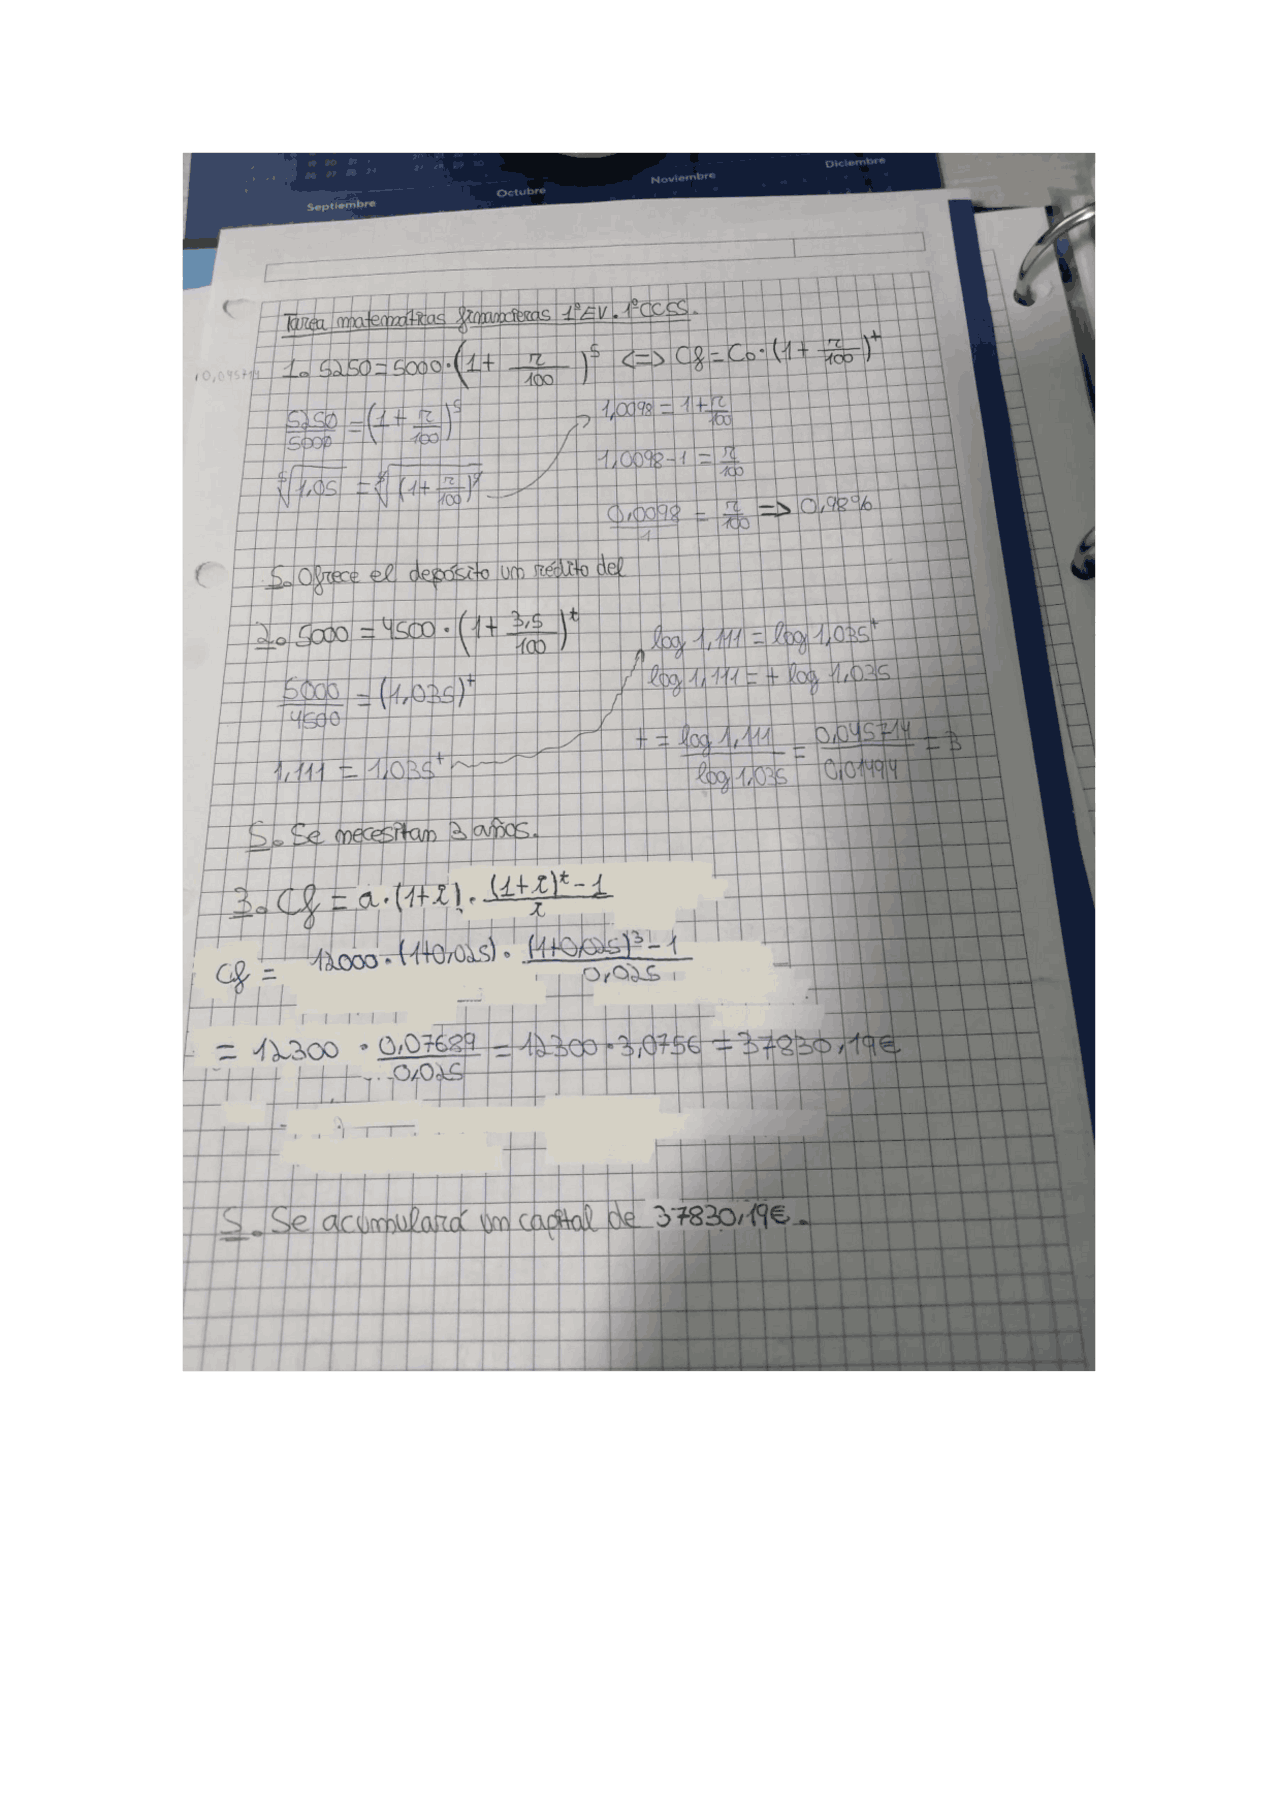 Septiembre
Octubre
Noviembre
Diciembre
Tarea matemáticas financieras 1ºEV. 1ºCCSS.
1. 5250=5000·(1+ r/100)^5 <=> Cf=Co·(1+ r/100)^t
5250/5000 =(1+ r/100)^5
⁵√1,05 = ⁵√(1+ r/100)^5
1,0098 = 1+ r/100
1,0098-1 = r/100
0,0098/1 = r/100 => 0,98%
S. Ofrece el depósito un rédito del
2. 5000 = 4500·(1+ 3,5/100)^t
5000/4500 = (1,035)^t
1,111 = 1,035^t
log 1,111 = log 1,035^t
log 1,111 = t log 1,035
t = log 1,111/log 1,035 = 0,045714/0,01494 = 3
S. Se necesitan 3 años.
3. Cf = a·(1+i)· (1+i)^t - 1/i
Cf = 12000·(1+0,025)· (1+0,025)^3 - 1/0,025
= 12300 · 0,07689/0,025 = 12300·3,0756 = 37830,19€
S. Se acumulará un capital de 37830,19€.